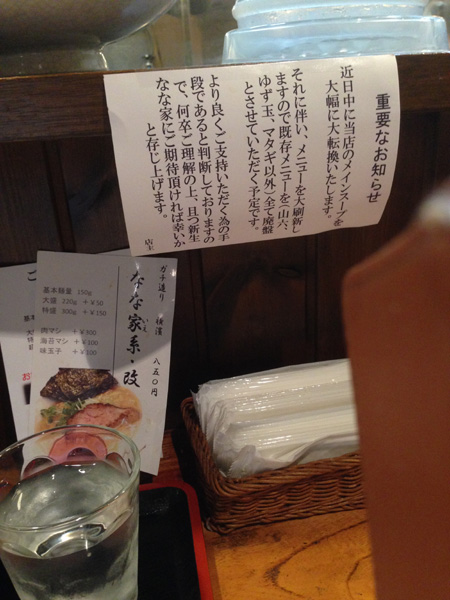 重要なお知らせ
近日中に当店のメインスープを
大幅に大転換いたします。
それに伴い、メニューを大刷新し
ますので既存メニューを(山六、
ゆず玉、マタギ以外)全て廃盤
とさせていただく予定です。
より良くご支持いただく為の手
段であると判断しておりますの
で、何卒ご理解の上、且つ新生
なな家にご期待頂ければ幸いか
と存じ上げます。
店主
ガチ造り 横濱
なな家系・改
八五〇円
基本麺量 150g
大盛 220g +¥50
特盛 300g +¥150
肉マシ +¥300
海苔マシ +¥100
味玉子 +¥100